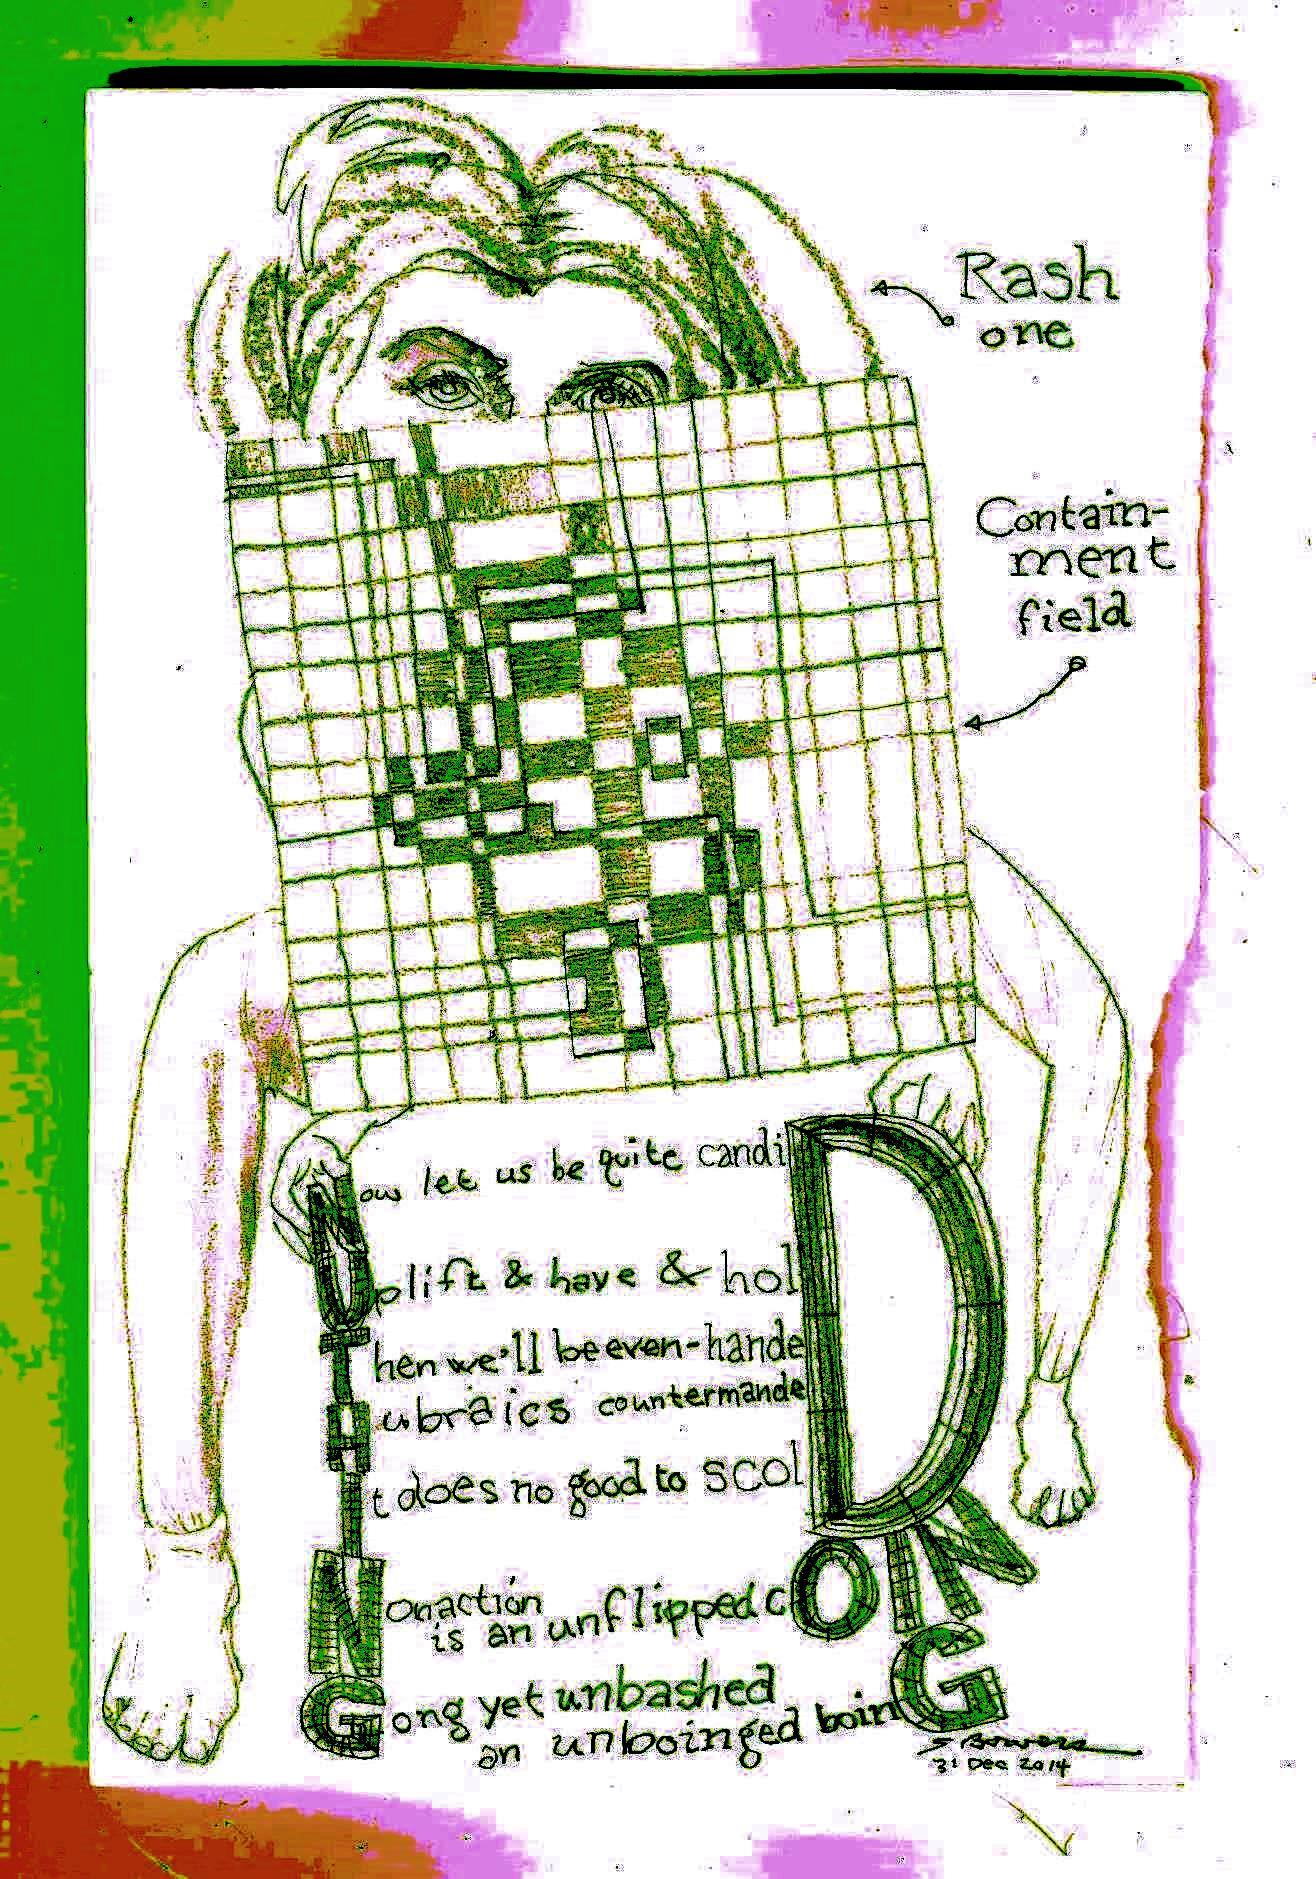 Rash
one
Contain-
ment
field
Now let us be quite candiD
Uplift & have & holD
Then we'll be even-handeD
Hubraics countermandeD
It does no good to scolD
Nonaction
is an unflipped cOIN
Gong yet unbashed
an unboinged boinG
31 Dec 2014